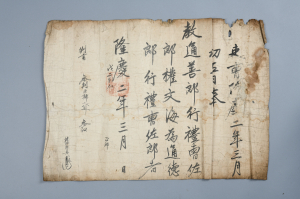 吏曹隆慶二年三月
初五日奉
教通善郎行禮曹佐
郎權文海爲通德
郎行禮曹佐郎者
隆慶二年三月 日